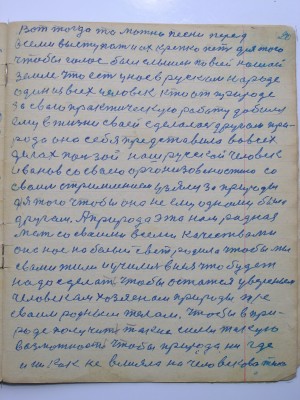 Вот тогда то можно песни перед
всеми выступат и их крепко пет для того
чтобы голос был слышен по всей нашей
земле что ест у нас в русском народе
один из всех человек кто от природе
за свою практическую работу добился
ему в жизни своей сделалас другом при-
рода она себя представила во всех
делах пользой наш русской человек
Иванов со своею организованностю со
своим стримлением взялу за природы
для того чтобы она не ему одному был
другам. А природа это нам родная
мат со своими всеми качествами
она нас на белый свет родила чтобы мы
с вами жили и учился в ней что будет
надо сделат чтобы остатся уверенным
человекам хозяенам природы при
своим родным телам. Чтобы в при-
роде получит такие силы такую
возможност чтобы природа ни где
и ни как не влияла на человека так